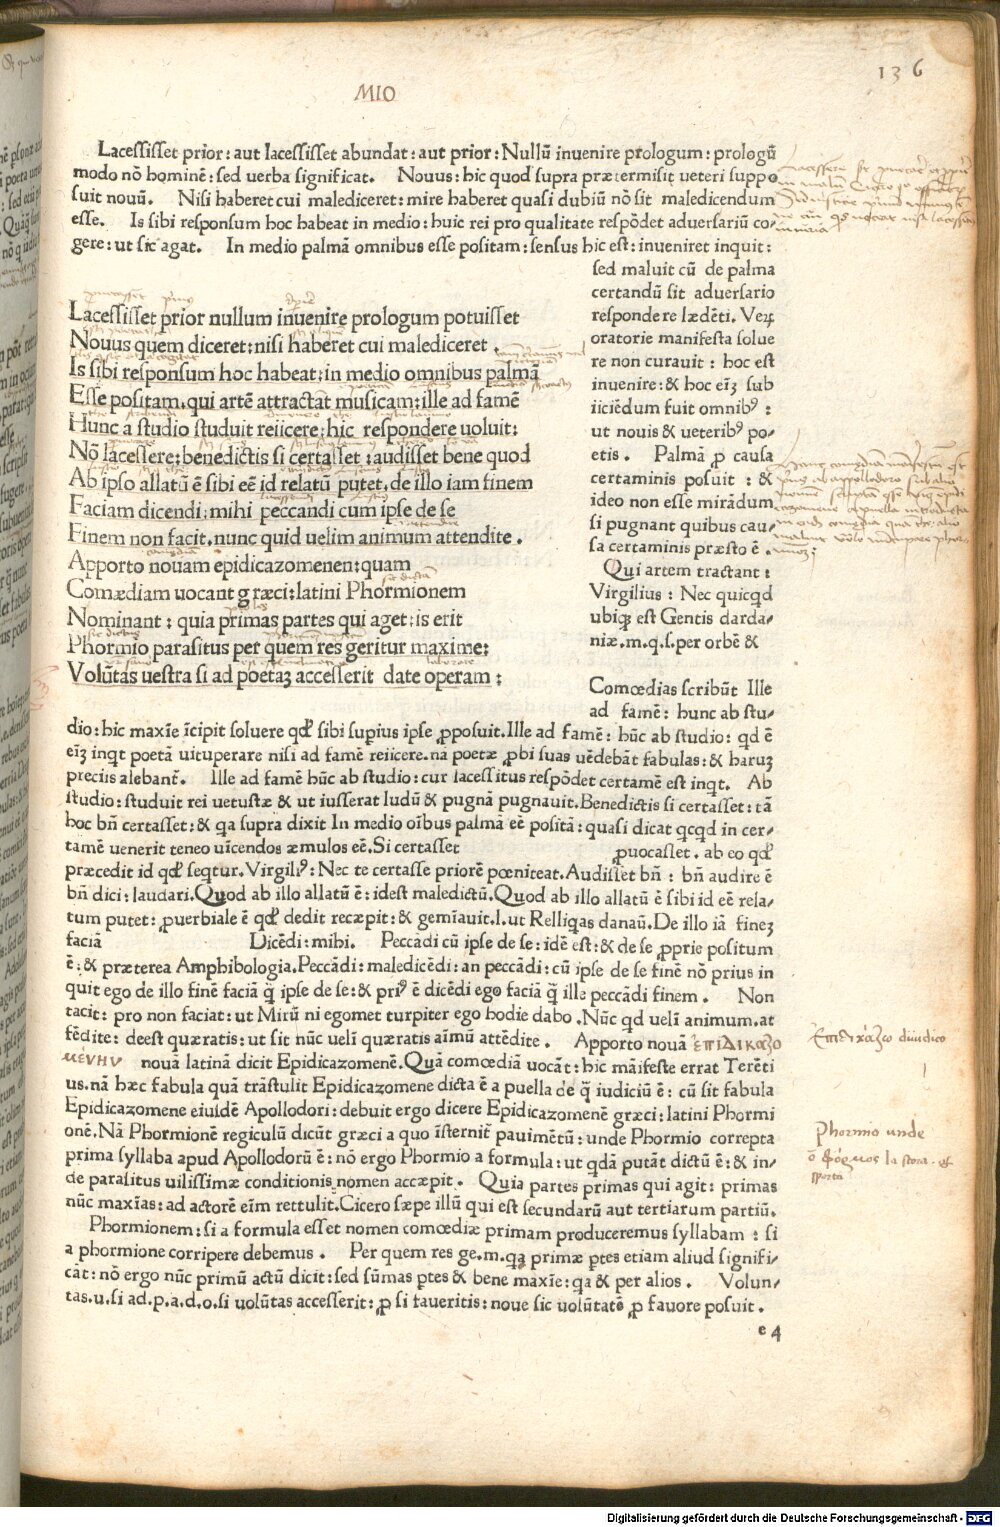 136
MIO
Lacessisset prior: aut lacessisset abundat: aut prior: Nullū inuenire prologum: prologū
modo nō hominē: sed uerba significat. Nouus: hic quod supra prætermisit ueteri suppo
suit nouū. Nisi haberet cui malediceret: mire haberet quasi dubiū nō sit maledicendum
esse. Is sibi responsum hoc habeat in medio: huic rei pro qualitate respōdet aduersariū co/
gere: ut sic agat. In medio palmā omnibus esse positam: sensus hic est: inueniret inquit:
sed maluit cū de palma
certandū sit aduersario
respondere lædēti. Veꝝ
oratorie manifesta solue
re non curauit: hoc est
inuenire: & hoc eīꝫ sub
iiciēdum fuit omnibꝰ:
ut nouis & ueteribꝰ po/
etis. Palmā ꝓ causa
certaminis posuit: & 
ideo non esse mirādum
si pugnant quibus cau/
sa certaminis præsto ē.
Qui artem tractant:
Virgilius: Nec quicqd
ubiqꝫ est Gentis darda/
niæ.m.q.s.per orbē &
Comœdias scribūt Ille
ad famē: hunc ab stu/
Lacessisset prior nullum inuenire prologum potuisset
Nouus quem diceret: nisi haberet cui malediceret.
Is sibi responsum hoc habeat: in medio omnibus palmā
Esse positam: qui artē attractāt musicam: ille ad famē
Hunc a studio studuit reiicere: hic respondere uoluit:
Nō lacessere: benedictis si certasset: audisset bene quod
Ab ipso allatū ē sibi eē id relatū putet. de illo iam finem
Faciam dicendi: mihi peccandi cum ipse de se
Finem non facit. nunc quid uelim animum attendite.
Apporto nouam epidicazomenen: quam
Comœdiam uocant græci: latini Phormionem
Nominant: quia primas partes qui aget: is erit
Phormio parasitus per quem res geritur maxime:
Volūtas uestra si ad poetaꝫ accesserit date operam:
dio: hic maxīe īcipit soluere qđ sibi supius ipse ꝓposuit. Ille ad famē: hūc ab studio: qd ē
eīꝫ inqt poetā uituperare nisi ad famē reiicere. nā poetæ ꝓbi suas uēdebāt fabulas: & haruꝫ
preciis alebant̄. Ille ad famē hūc ab studio: cur lacessitus respōdet certamē est inqt. Ab
studio: studuit rei uetustæ & ut iusserat ludū & pugnā pugnauit. Benedictis si certasset: tā
hoc bn̄ certasset: & qa supra dixit In medio oībus palmā eē positā: quasi dicat qcqd in cer/
tamē uenerit teneo uīcendos æmulos eē. Si certasset ꝓuocasset. ab eo qđ
præcedit id qđ seqtur. Virgiliꝰ: Nec te certasse priorē pœniteat. Audisset bn̄: bn̄ audire ē
bn̄ dici: laudari. Quod ab illo allatū ē: idest maledictū. Quod ab illo allatū ē sibi id eē rela/
tum putet: ꝓuerbiale ē qđ dedit recæpit: & gemīauit. l. ut Relliqas danaū. De illo iā fineꝫ
faciā Dicēdi: mihi. Peccādi cū ipse de se: idē est: & de se ꝓprie positum
ē: & præterea Amphibologia. Peccādi: maledicēdi: an peccādi: cū ipse de se finē nō prius in
quit ego de illo finē faciā q̄ ipse de se: & priꝰ ē dicēdi ego faciā q̄ ille peccādi finem. Non
tacit: pro non faciat: ut Mirū ni egomet turpiter ego hodie dabo. Nūc qd uelī animum. at
tēdite: deest quæratis: ut sit nūc uelī quæratis aīmū attēdite. Apporto nouā ἐπιΔικαζο
μένην nouā latinā dicit Epidicazomenē. Quā comœdiā uocāt: hic māifeste errat Terēti
us. nā hæc fabula quā trāstulit Epidicazomene dicta ē a puella de q̄ iudiciū ē: cū sit fabula
Epidicazomene eiusdē Apollodori: debuit ergo dicere Epidicazomenē græci: latini Phormi
onē. Nā Phormionē regiculū dicūt græci a quo īsternit̄ pauimētū: unde Phormio correpta
prima syllaba apud Apollodorū ē: nō ergo Phormio a formula: ut qdā putāt dictū ē: & in/
de parasitus uilissimæ conditionis nomen accæpit. Quia partes primas qui agit: primas
nūc maxīas: ad actorē eīm rettulit. Cicero sæpe illū qui est secundarū aut tertiarum partiū.
Phormionem: si a formula esset nomen comœdiæ primam produceremus syllabam: si
a phormione corripere debemus. Per quem res ge.m.qa primæ ptes etiam aliud signifi/
cāt: nō ergo nūc primū actū dicit: sed sūmas ptes & bene maxīe: qa & per alios. Volun/
tas.u.si ad.p.a.d.o.si uolūtas accesserit: ꝓ si faueritis: noue sic uolūtatē ꝓ fauore posuit.
e 4
ἐπιδικάζω diiudico
Phormio unde
ὁ φόρμος
Digitalisierung gefördert durch die Deutsche Forschungsgemeinschaft - DFG